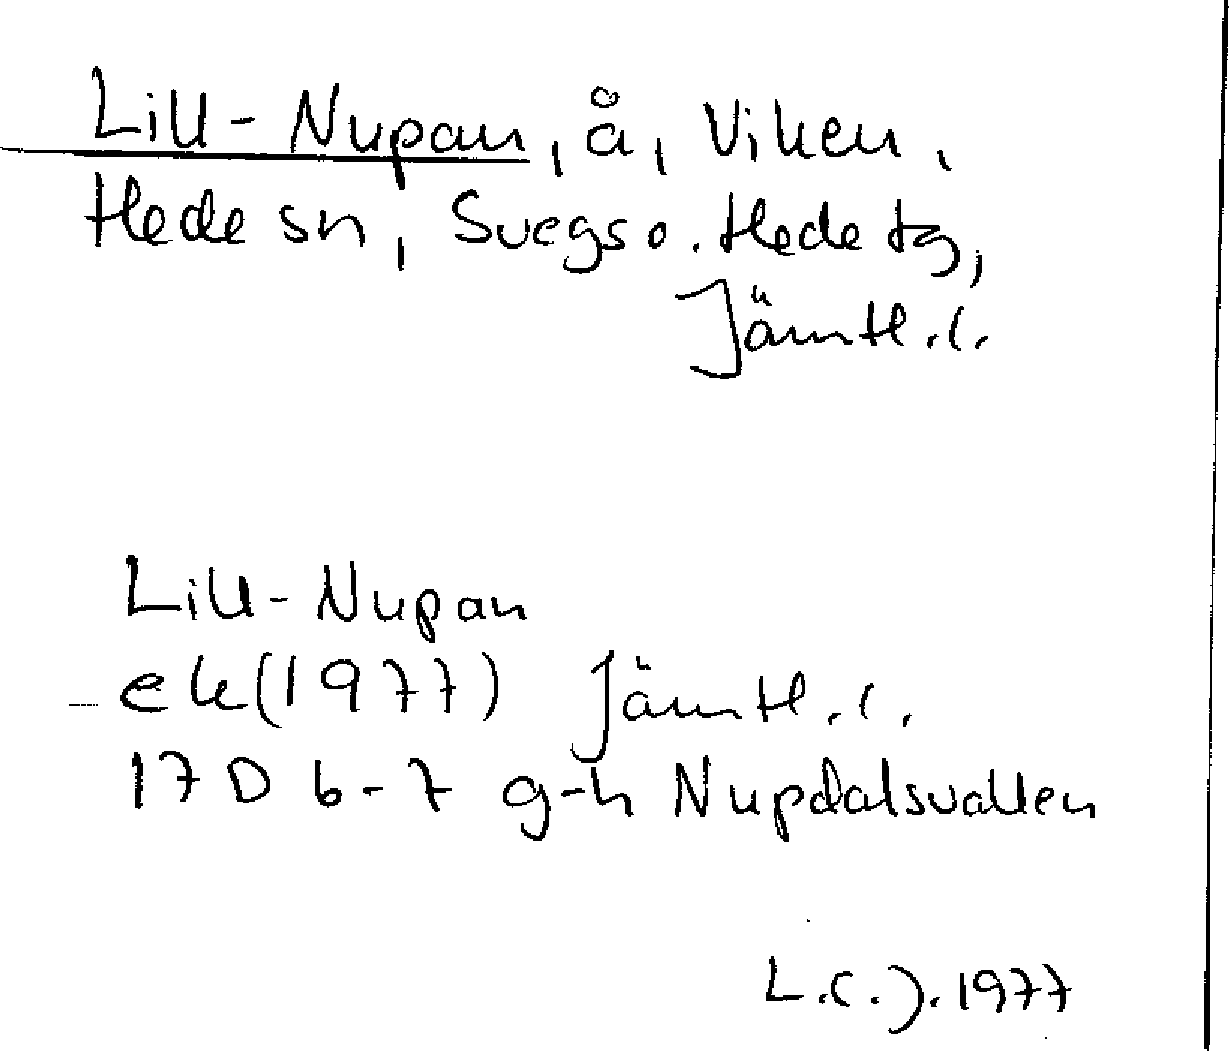 Lill-Nupan, å, Viken,
Hede sn, Svegs o. Hede tg,
Jämtl.l.
Lill-Nupan
ek(1977) Jämtl.l.
17 D 6-7 g-h Nupdalsvallen
L.C.J. 1977